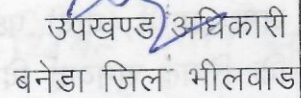 उपखण्ड अधिकारी
बनेडा जिला भीलवाड